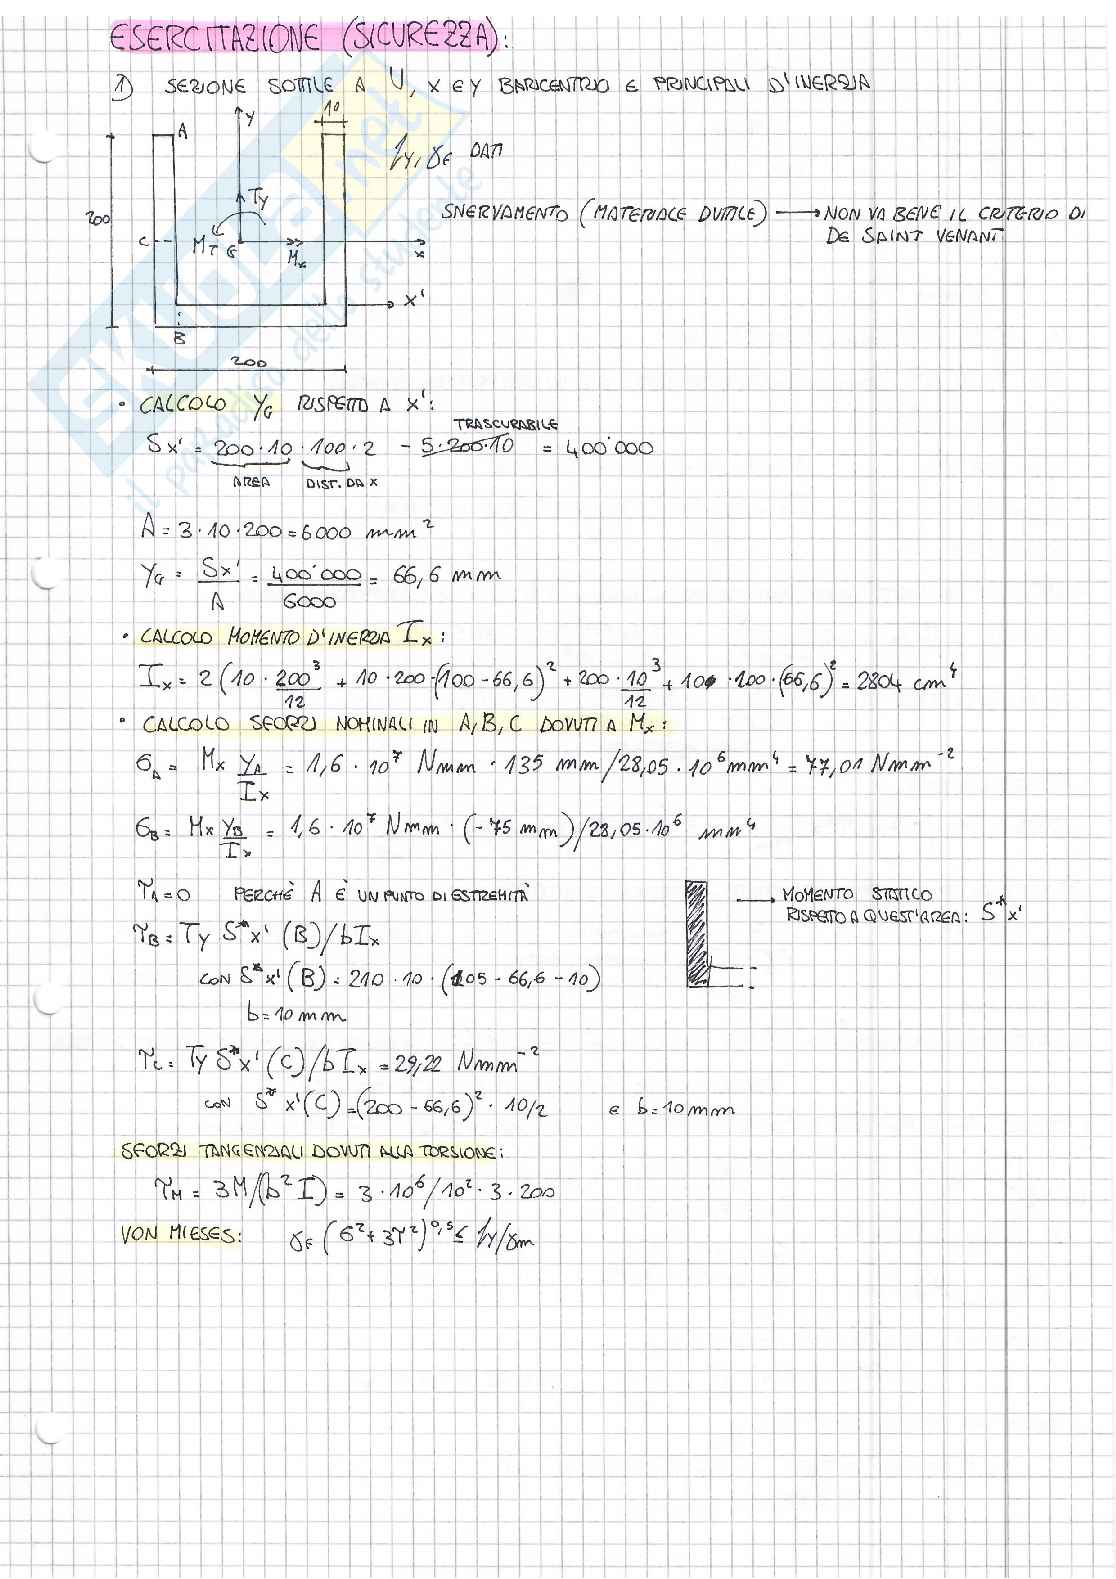 ESERCITAZIONE (SICUREZZA):
1) SEZIONE SOTTILE A U, X E Y BARICENTRICO E PRINCIPALI D'INERZIA
10
Y
A
fy, γE DATI
Ty
200
SNERVAMENTO (MATERIALE DUTTILE) → NON VA BENE IL CRITERIO DI
DE SAINT VENANT
C
MT G
Mx
x
X'
B
200
• CALCOLO YG RISPETTO A X':
TRASCURABILE
Sx' = 200·10·100·2 - 5·200·10 = 400'000
AREA DIST. DA X
A = 3·10·200 = 6000 mm²
YG = Sx'/A = 400'000/6000 = 66,6 mm
• CALCOLO MOMENTO D'INERZIA Ix:
Ix = 2(10·200³/12 + 10·200·(100-66,6)² + 200·10³/12 + 10·100·(66,6)² = 2804 cm⁴
• CALCOLO SFORZI NOMINALI IN A, B, C DOVUTI A Mx:
σA = Mx YA/Ix = 1,6·10⁷ Nmm·135 mm/28,05·10⁶ mm⁴ = 77,01 Nmm⁻²
σB = Mx YB/Ix = 1,6·10⁷ Nmm·(-75 mm)/28,05·10⁶ mm⁴
τA = 0 PERCHÈ A È UN PUNTO DI ESTREMITÀ
→ MOMENTO STATICO
RISPETTO A QUEST'AREA: S*x'
τB = Ty S*x'(B)/bIx
CON S*x'(B) = 210·10·(105-66,6-10)
b = 10 mm
τC = Ty S*x'(C)/bIx = 29,22 Nmm⁻²
CON S*x'(C) = (200-66,6)²·10/2 e b = 10 mm
SFORZI TANGENZIALI DOVUTI ALLA TORSIONE:
τM = 3M/(b²I) = 3·10⁶/10²·3·200
VON MIESES: γE (σ²+3τ²)^0,5 ≤ fy/γm
SKUOLA.net
il paradiso dello studente